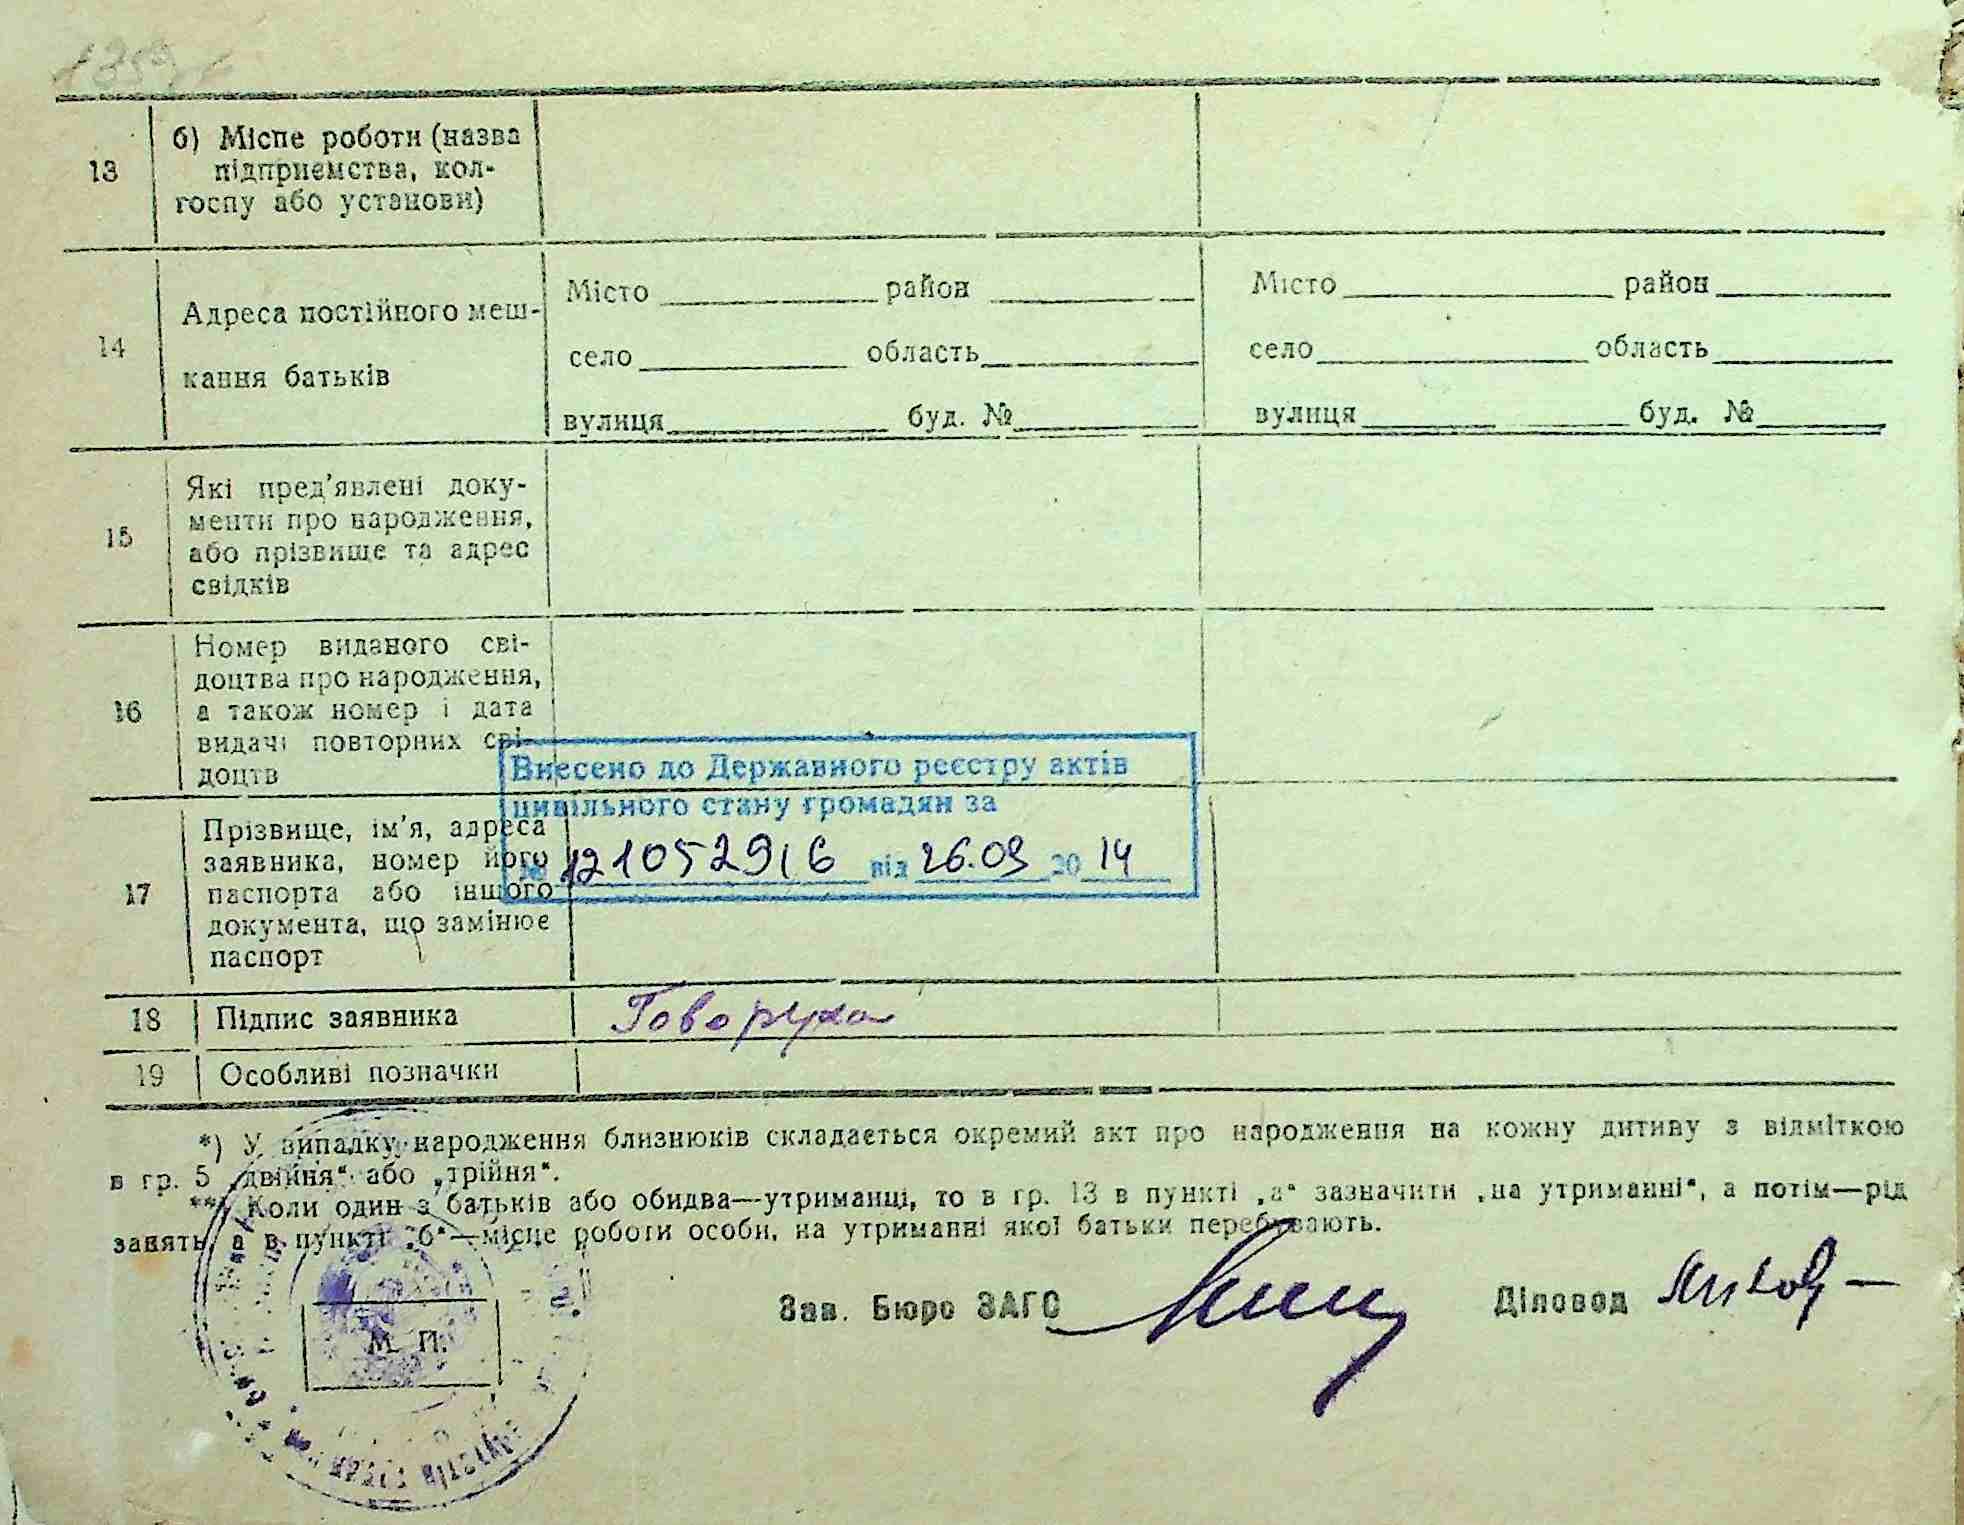 13
б) Місце роботи (назва
підприємства, кол-
госпу або установи)
14
Адреса постійного меш-
кання батьків
Місто район
село область
вулиця буд. №
Місто район
село область
вулиця буд. №
15
Які пред'явлені доку-
менти про народження,
або прізвище та адрес
свідків
16
Номер виданого сві-
доцтва про народження,
а також номер і дата
видачі повторних сві-
доцтв
Внесено до Державного реєстру актів
цивільного стану громадян за
№ 121052916 від 26.03 2014
17
Прізвище, ім'я, адреса
заявника, номер його
паспорта або іншого
документа, що замінює
паспорт
18 Підпис заявника Говоруха
19 Особливі позначки
*) У випадку народження близнюків складається окремий акт про народження на кожну дитину з відміткою
в гр. 5 „двійня“ або „трійня“.
**) Коли один з батьків або обидва—утриманці, то в гр. 13 в пункті „а“ зазначити „на утриманні“, а потім—рід
занять, а в пункті „б“—місце роботи особи, на утриманні якої батьки перебувають.
Зав. Бюро ЗАГС
Діловод
М. П.